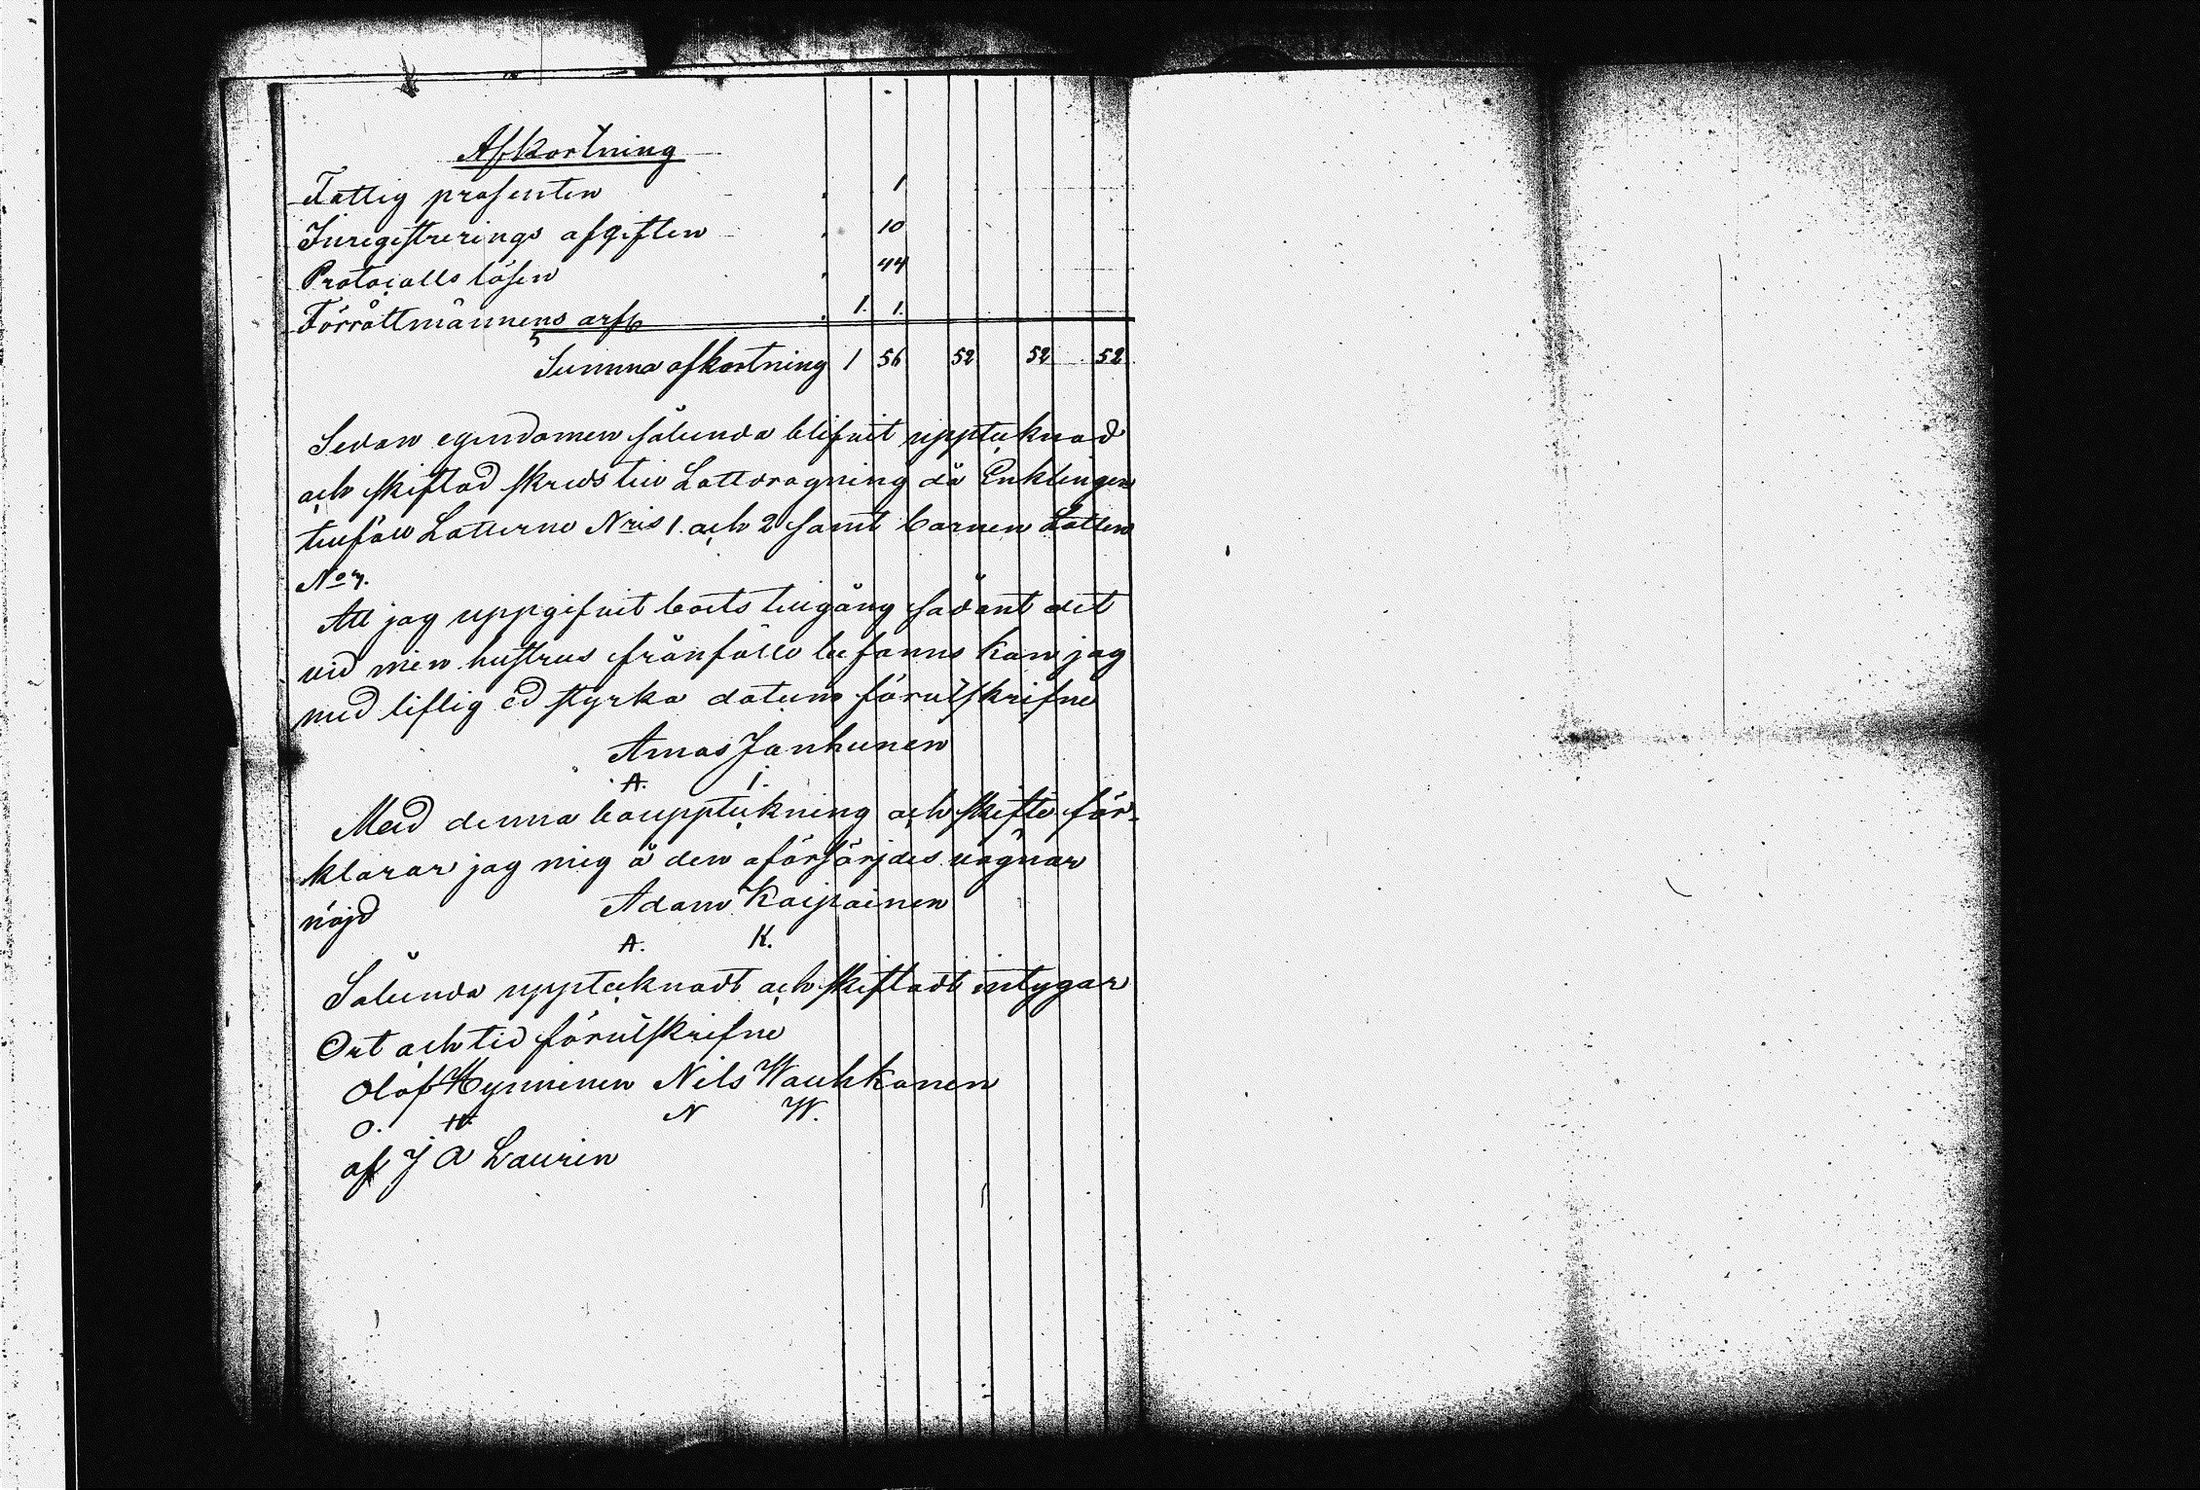 Afkortning
Fattig prosenten . 1
Inregistrerings afgiften . 10
Protocolls lösen . 44
Förrättmännens arf . 1. 1.
Summa afkortning 1 56 52 52 52
Sedan egendomen sålunda blifvit upptecknad
och skiftad skreds till Lottdragning då Enklingen
tillföll Lotterne Nris 1. och 2 samt barnen Lotten
No 3.
Att jag uppgifvit boets tillgång sådant det
vid min hustrus frånfälle befanns kan jag
med liflig ed styrka datum förutskrifne
Amas Janhunen
A. J.
Med denna bouppteckning och skifte för-
klarar jag mig å den oförsörjdes vägnar
nöjd Adam Kaipainen
A. K.
Sålunda upptecknadt och skiftadt intygar
Ort och tid förutskrifne
Olof Hynninen Nils Wauhkonen
O. H. N W.
af J A Laurin